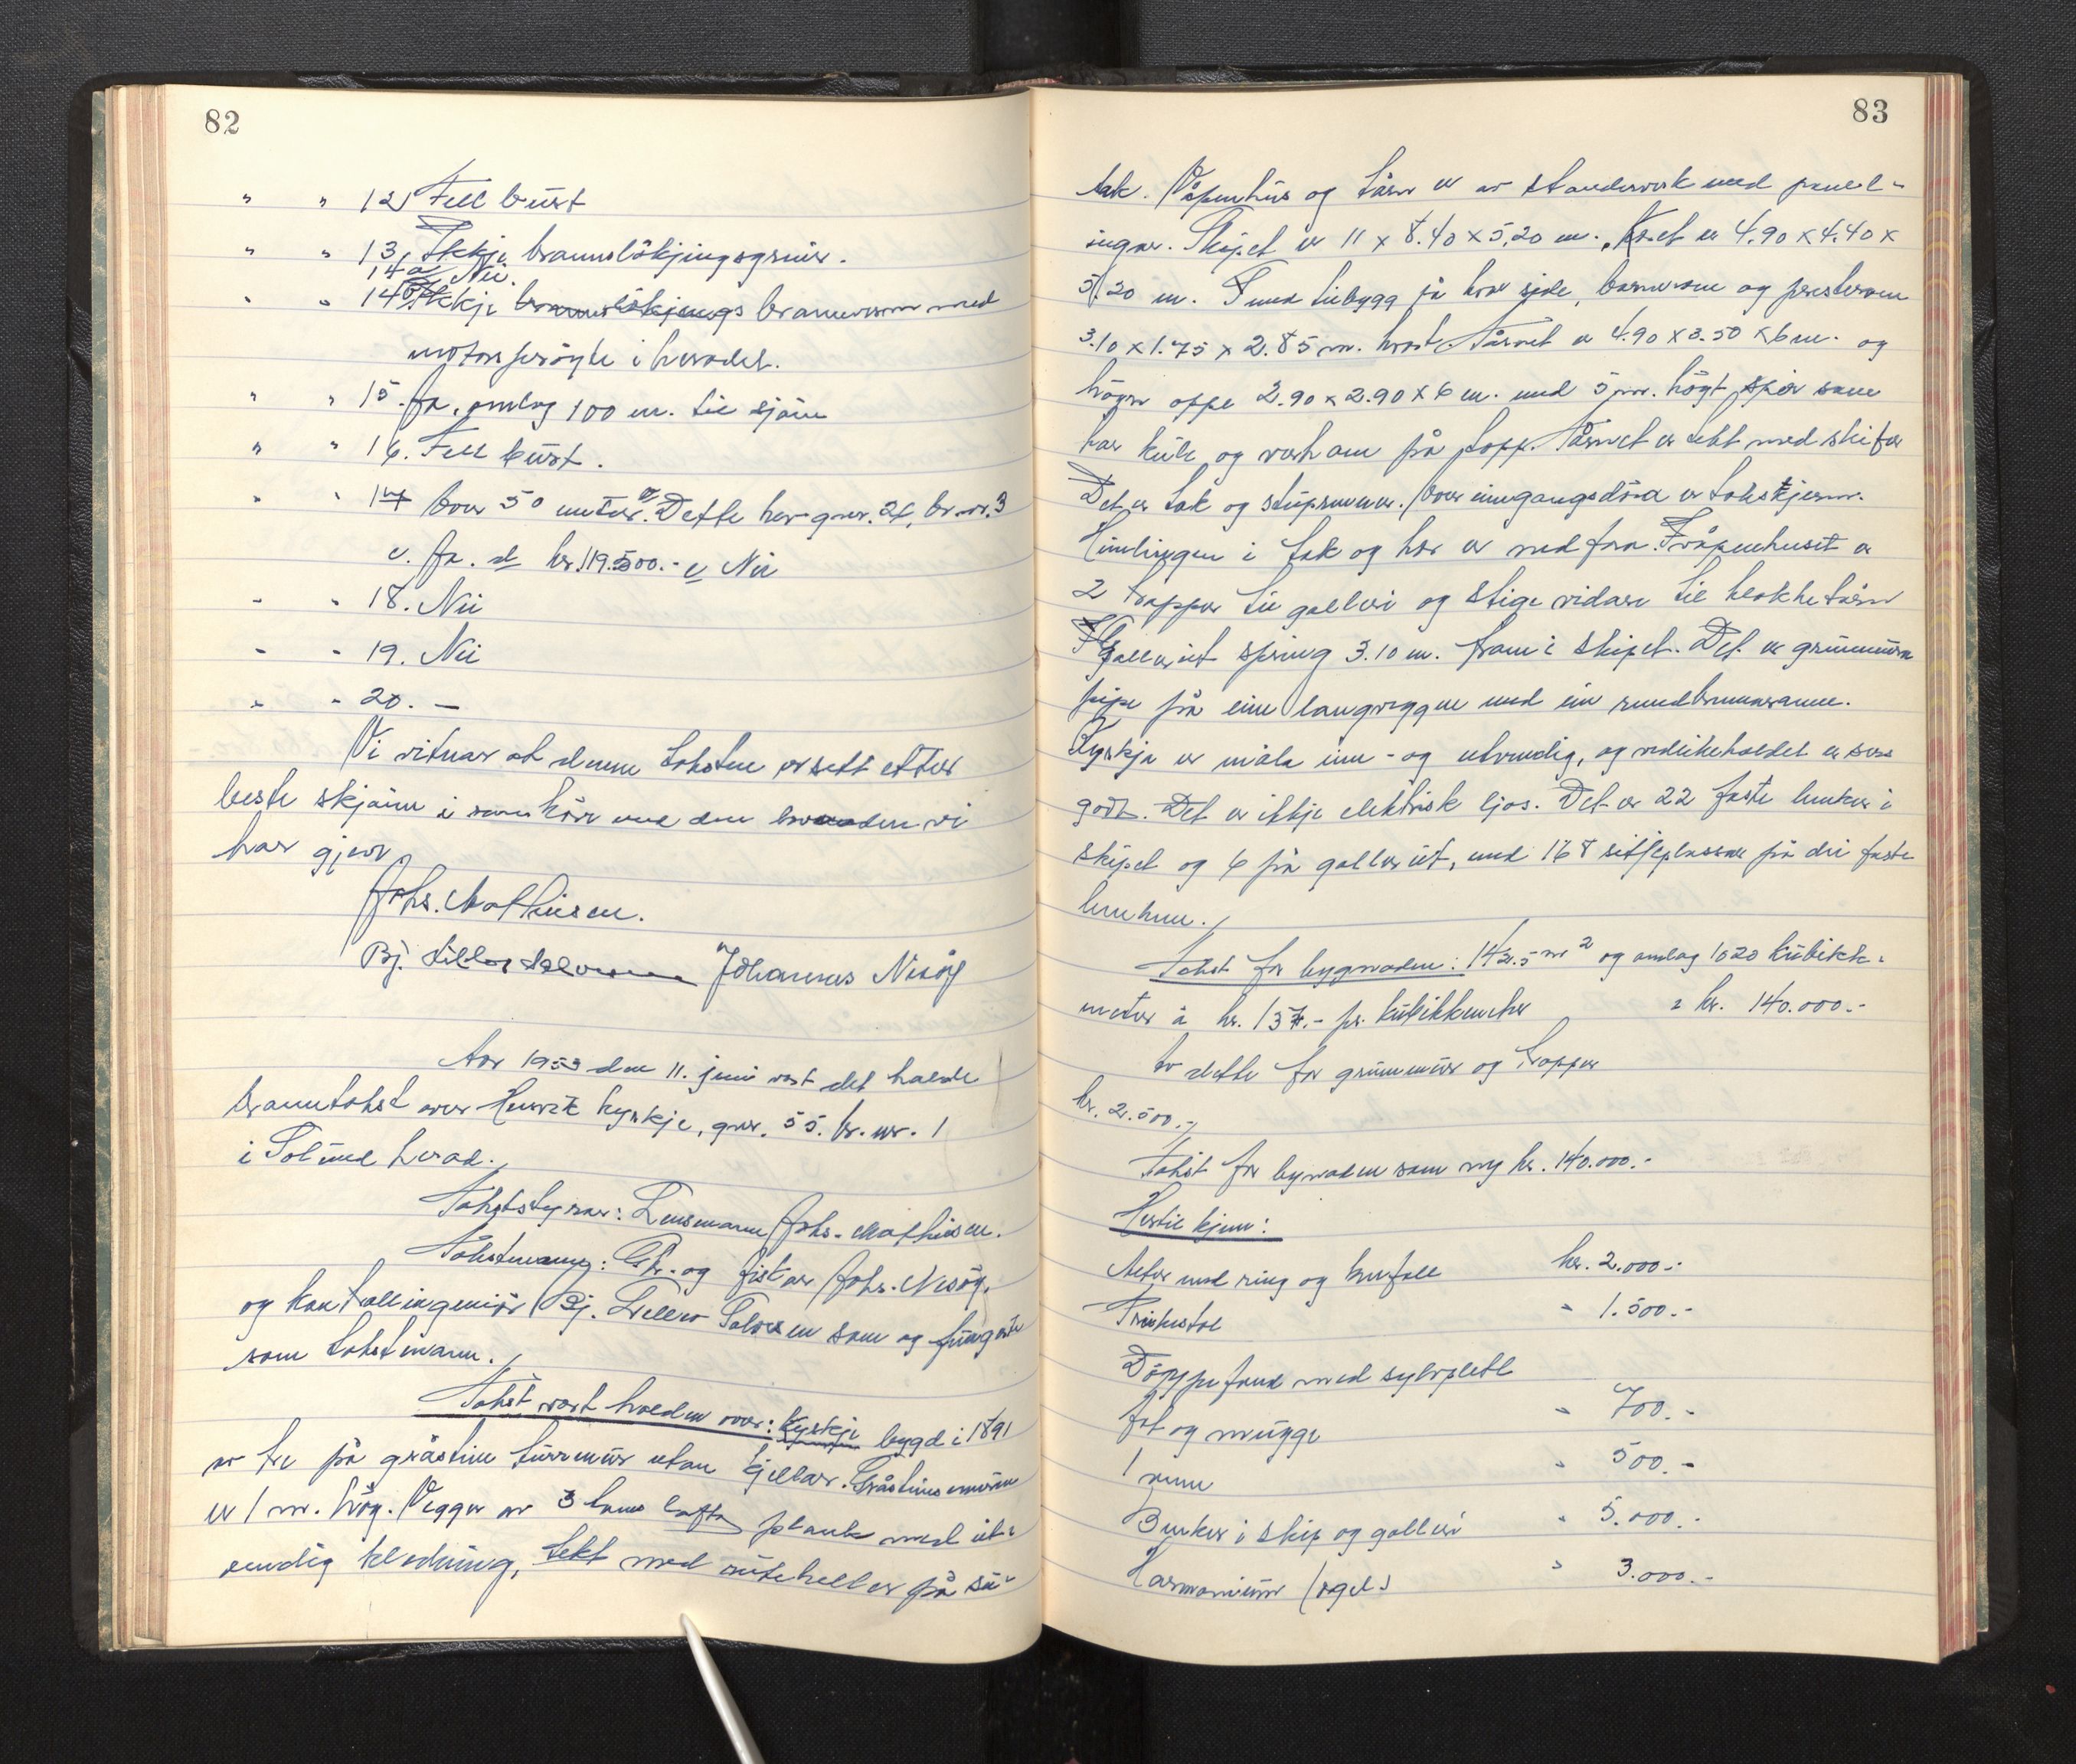 82
" " 12 Fell burt
" " 13, Ikkje brannslökjingsgreier.
14a Nei.
" " 14b Ikkje brannslökjings brannvern med
motorspröyte i heradet.
" " 15. Ja, omlag 100 m. til sjöen
" " 16. Fell burt.
" " 17 Over 50 meter. Dette her gnr. 24, br.nr. 3
c. Ja. d kr. 119.500.- e Nei
" " 18. Nei
" " 19. Nei
" " 20. —
Vi vitnar at denne taksten er sett etter
beste skjönn i samhöve med den vi
har gjeve
Johs. Mathiesen.
Bj. Johannes Nesöy
Aar 1953 den 11. juni vart det halde
branntakst over Husvik kyrkje, gnr. 55. br. nr. 1
i Solund herad.
Takststyrar: Lensmann Johs. Mathiesen.
Takstmenn: Gbr. og fiskar Johs. Nesöy.
og kontrollingeniör Bj. Tillero Salvesen som og fungerte
som takstmann.
Takst vart halden over: Kyrkje bygd i 1891
av tre på gråstein turrmur utan kjellar. Gråsteinsmuren
er 1 m. hög. Vegger av 3 toms lafta plank med ut-
vendig kledning, tekt med ruteheller på su-
83
tak. Våpenhus og tårn er av standerverk med panel-
ingar. Skipet er 11 x 8.40 x 5,20 m. Koret er 4.90 x 4.40 x
5.20 m. I med tilbygg på kvar side, barnerom og presterom
3.10 x 1.75 x 2.85 m. kvart Tårnet er 4.90 x 3.50 x 6 m. og
högre oppe 2.90 x 2.90 x 6 m. med 5 m. högt spir som
har kule og verhane på topp. Tårnet er tekt med skifer
Det er tak og stuprenner. Over inngangsdöra er takskjerm.
Himlingen i tak og kor er med Våpenhuset er
2 trapper til galleri og stige vidare til klokketårn
Galleriet spring 3.10 m. fram i skipet. Det er grunnmura
pipe på eine langveggen med ein rundbrennaromn.
Kyrkja er måla inn- og utvendig, og vedlikehaldet er
godt. Det er ikkje elektrisk ljos. Det er 22 faste benker i
skipet og 6 på galleriet, med 168 sitjeplassar på dei faste
benkene.
Takst for bygnaden: 142.5 m² og omlag 1020 kubikk-
meter à kr. 137.- pr. kubikkmeter = kr. 140.000.-
Av dette for grunnmur og trapper
kr. 2.500.-
Takst for bygnaden som ny kr. 140.000.-
Hertil kjem:
Alter med ring og knefall kr. 2.000.-
Preikestol " 1.500.-
Döypefont med sylvplett
fat og mugge " 700.-
1 omn " 500.-
Benker i skip og galleri " 5.000.-
Harmonium (orgel) " 3.000.-